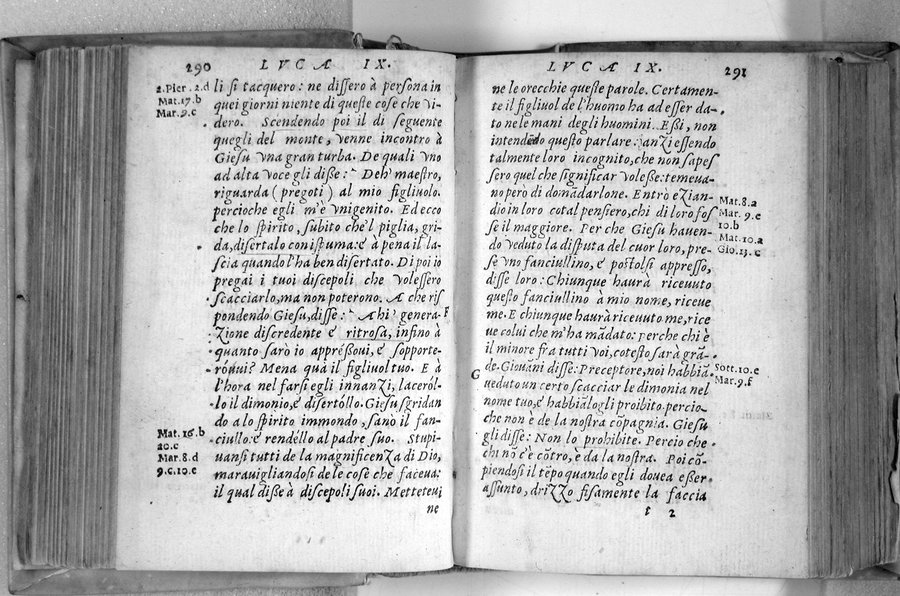 290
LVCA IX.
2.Pier.2.d
Mat.17.b
Mar.9.c
li si tacquero: ne dissero à persona in
quei giorni niente di queste cose che vi-
dero. Scendendo poi il di seguente
quegli del monte, venne incontro à
Giesu vna gran turba. De quali vno
ad alta voce gli disse: Deh' maestro,
riguarda (pregoti) al mio figliuolo.
percioche egli m'è vnigenito. Ed ecco
che lo spirito, subito che'l piglia, gri-
da, disertalo con ispuma: e à pena il la-
scia quando l'ha ben disertato. Di poi io
pregai i tuoi discepoli che volessero
scacciarlo, ma non poterono. A che ris
pondendo Giesu, disse: Ahi genera-
F
zione discredente e ritrosa, infino à
quanto sarò io appressoui, e sopporte-
rouui? Mena quà il figliuol tuo. E à
l'hora nel farsi egli innanzi, lacerol-
lo il dimonio, e disertollo. Giesu sgridan
do a lo spirito immondo, sanò il fan-
Mat.16.b
20.c
Mar.8.d
9.c.10.e
ciullo: e rendéllo al padre suo. Stupi-
uansi tutti de la magnificenza di Dio,
marauigliandosi de le cose che faceua:
il qual disse à discepoli suoi. Metteteui
ne
LVCA IX.
291
ne le orecchie queste parole. Certamen-
te il figliuol de l'huomo ha ad esser da-
to ne le mani degli huomini. Essi, non
intendendo questo parlare: anzi essendo
talmente loro incognito, che non sapes
sero quel che significar volesse: temeua-
no però di domadarlone. Entrò ezian-
dio in loro cotal pensiero, chi di loro fos
se il maggiore. Per che Giesu hauen-
do veduto la disputa del cuor loro, pre-
se vno fanciullino, e postolsi appresso,
Mat.8.a
Mar.9.e
10.b
Mat.10.a
Gio.13.c
disse loro: Chiunque haurà riceuuto
questo fanciullino à mio nome, riceue
me. E chiunque haurà riceuuto me, rice
ue colui che m'ha mãdato: perche chi è
il minore fra tutti voi, cotesto sarà grã-
de. Giouani disse: Preceptore, noi habbiã
Sott.10.e
Mar.9.f
G
veduto un certo scacciar le dimonia nel
nome tuo, e habbiãlogli proibito. percio-
che non è de la nostra cõpagnia. Giesu
gli disse: Non lo prohibite. Percio che
chi no c'è cõtro, è da la nostra. Poi cõ-
piendosi il tẽpo quando egli douea esser
assunto, drizzo fisamente la faccia
t 2